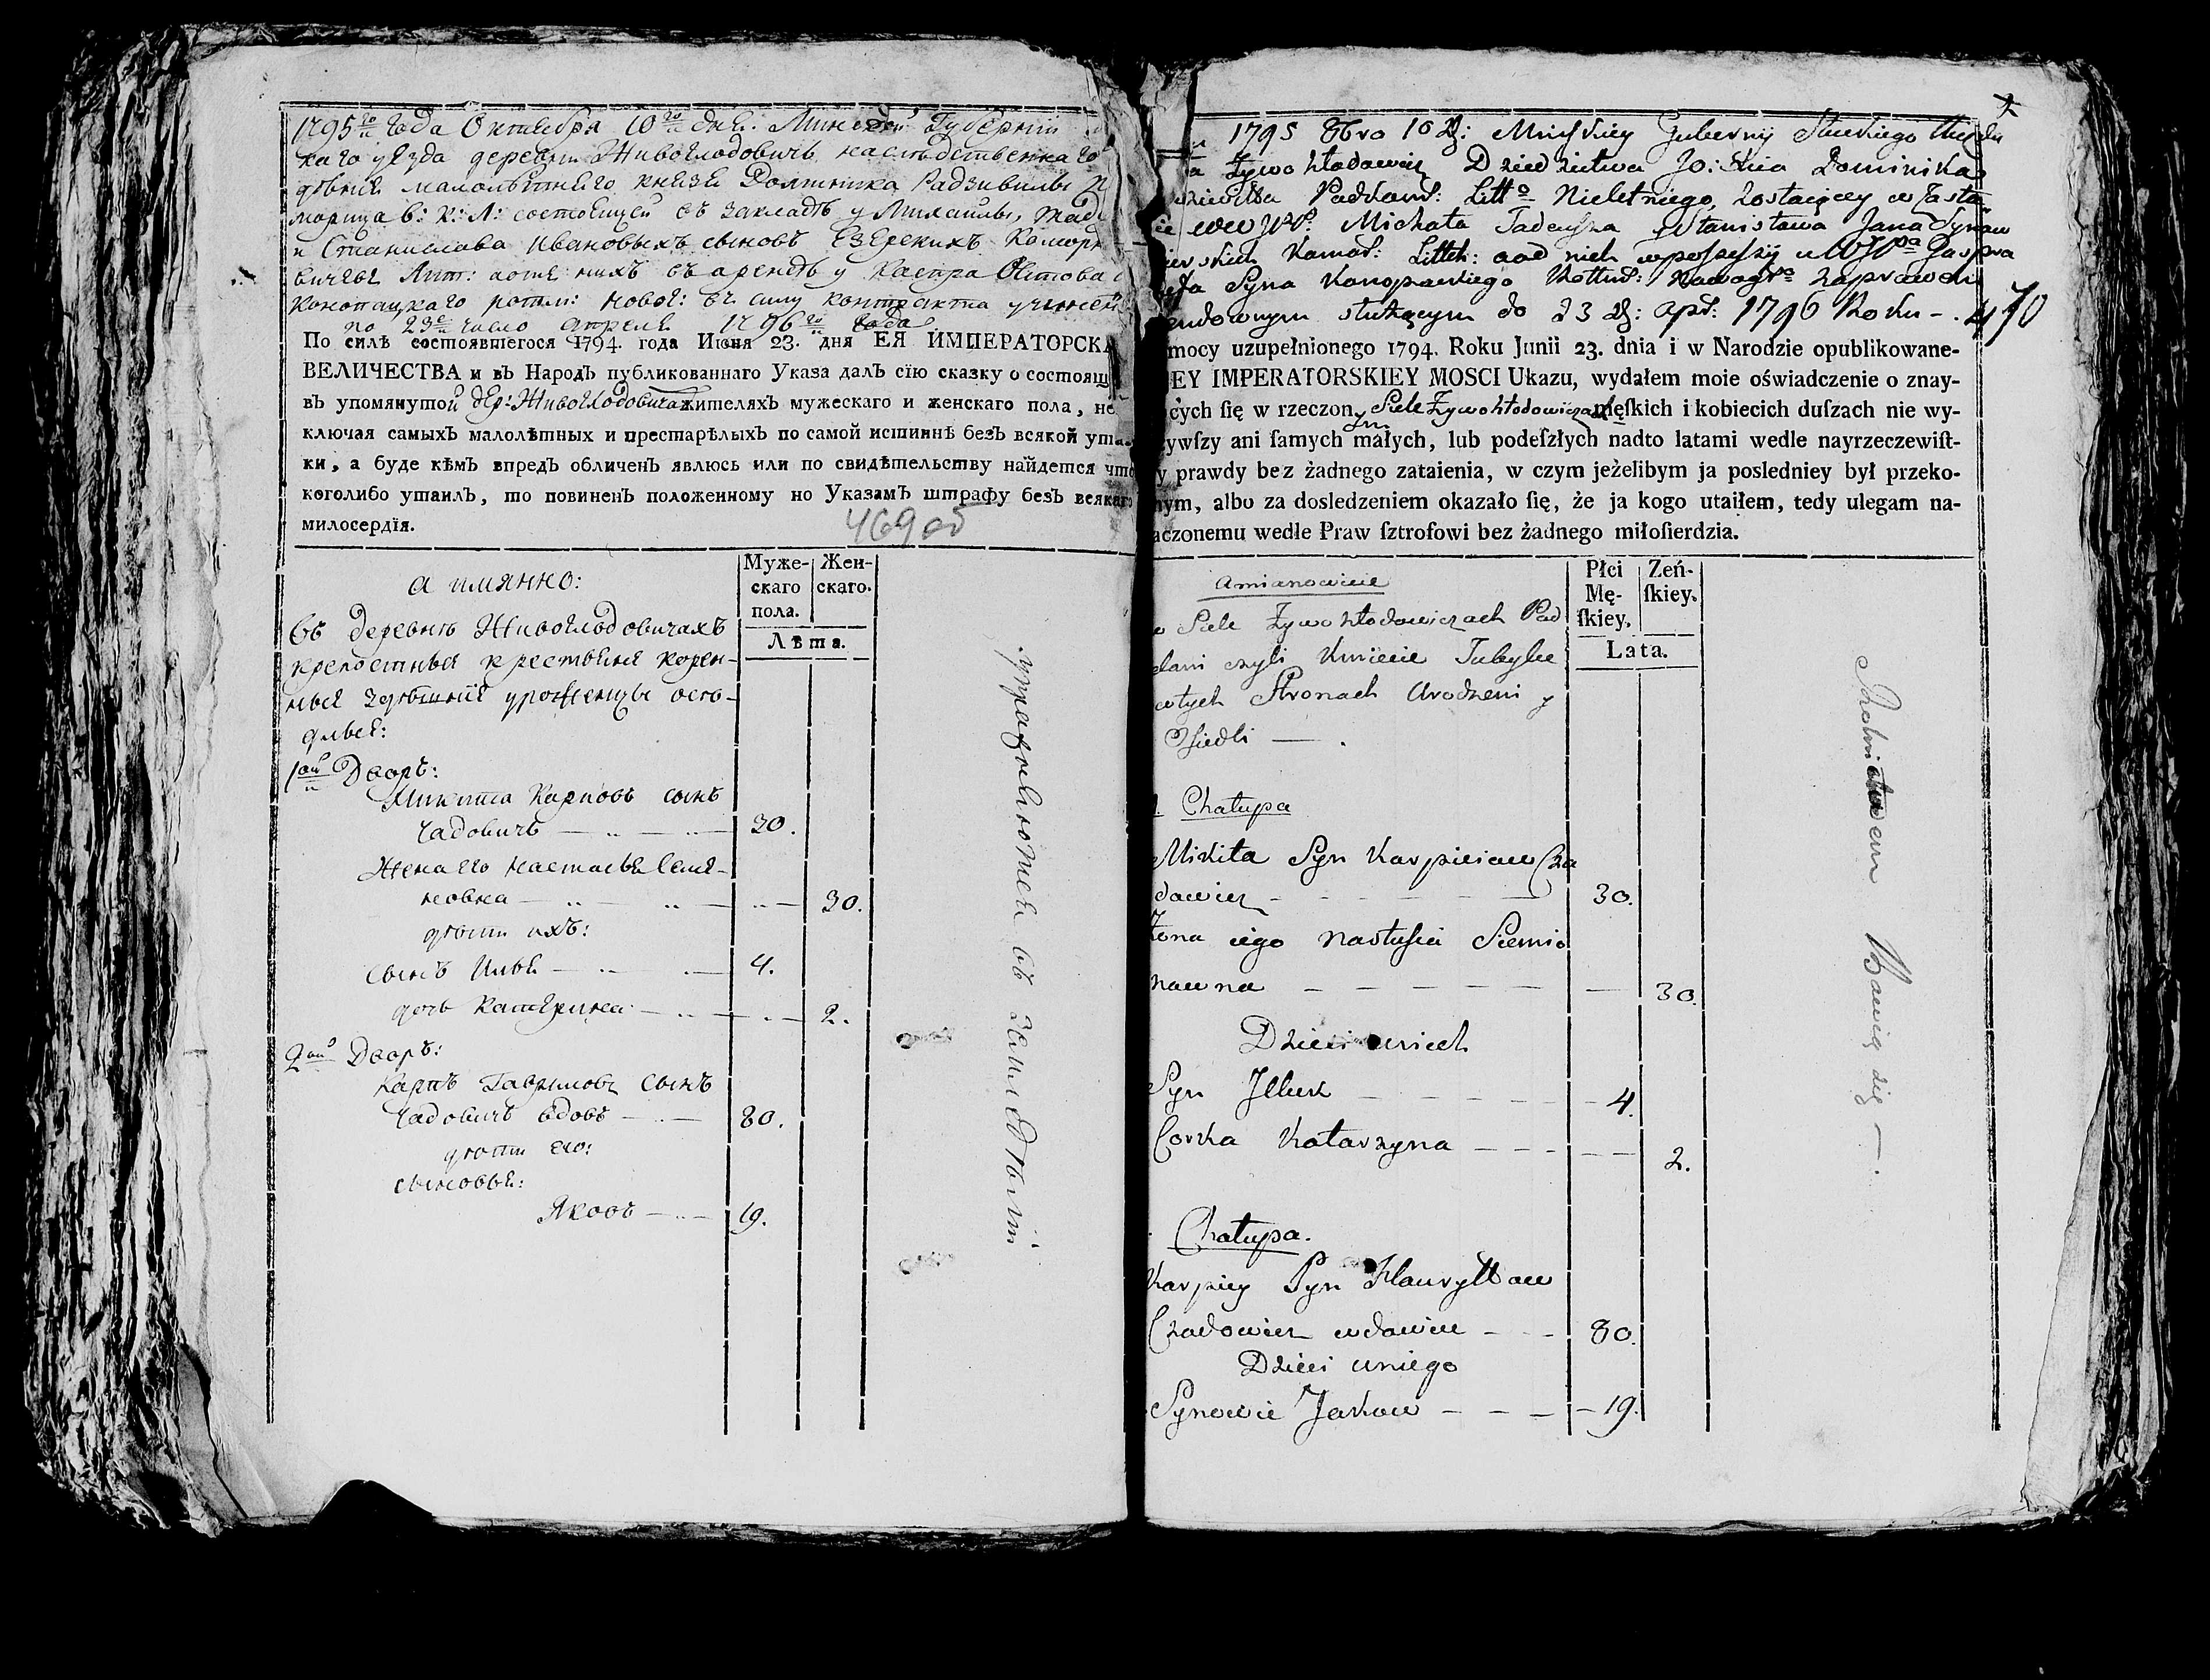 1795го года Октября 10го дня. Минской Губернии
каго уѣзда деревни Живоглодовичь наслѣдственнаго
дѣнія малолѣтняго князя Доминика Радзивилы
морица в: к: Л: состоящей въ закладѣ у Михайлы,
и Станислава Ивановыхъ сыновъ Езерскихъ
вичевъ Лит: а отъ нихъ въ арендѣ у Каспра
Конопацкаго ротм: новог: въ силу контракта
по 23е число апреля 1796го года
По силѣ состоявшегося 1794. года Июня 23. дня ЕЯ ИМПЕРАТОРСКА
ВЕЛИЧЕСТВА и въ Народъ публикованнаго Указа далъ сію сказку о состоящ
въ упомянутой дер: Живоглодовичахъ жителяхъ мужескаго и женскаго пола, не
ключая самыхъ малолѣтных и престарѣлыхъ по самой истиннѣ безъ всякой ута
ки, а буде кѣмъ впредъ обличенъ явлюсь или по свидѣтельству найдется что
коголибо утаилъ, то повиненъ положенному но Указамъ штрафу безъ всякаго
милосердія.
469об
Муже-скаго пола.
Жен-скаго.
Лѣта.
а имянно:
Въ деревнѣ Живоглодовичахъ
крепостныя крестьяне корен-
ныя здѣшнія уроженцы осѣ-
длыя:
1ой Дворъ:
Микита Карповъ сынъ
Чадовичъ 30.
Жена его Настасья Семе-
новна 30.
дѣти ихъ:
сынъ Илья 4.
дочь Катерина 2.
2ой Дворъ:
Карпъ Гаврилов сынъ
Чадовичъ вдовъ 80.
дѣти его:
сыновья:
Яковъ 19.
1795 8bro 10 D: Mińskiey Gubernij Słuckiego
Żywohłodowicz Dziedzictwa JO: Xcia Dominika
Podkom: Litto Nieletniego, zostaiącey w
Michała Tadeusza Stanisława Jana Synow
Kamor: Littch: aod nich w possessyi u
Syna Konopackiego Rottm: Nowogro
służącym do 23 D: apr: 1796 Roku
470
mocy uzupełnionego 1794. Roku Junii 23. dnia i w Narodzie opublikowane-
EY IMPERATORSKIEY MOSCI Ukazu, wydałem moie oświadczenie o znay-
ących ſię w rzeczonym Siele Żywohłodowiczach męſkich i kobiecich duſzach nie wy-
ywſzy ani ſamych małych, lub podeſzłych nadto latami wedle nayrzeczewiſt-
y prawdy bez żadnego zataienia, w czym jeżelibym ja posledniey był przeko-
nym, albo za dosledzeniem okazało ſię, że ja kogo utaiłem, tedy ulegam na-
aczonemu wedle Praw ſztrofowi bez żadnego miłoſierdzia.
Płci Mę-ſkiey.
Zeń-ſkiey.
Lata.
Amianowicie
w Siele Żywohłodowiczach Pod
dani czyli Kmiecie Tubylce
w tych Stronach Urodzeni y
Osiedli
1. Chałupa
Mikita Syn Karpieiow Cza
dowicz 30.
Żona iego Nastusia Siemio
nowna 30.
Dzieci u nich
Syn Illuk 4.
Corka Katarzyna 2.
Chałupa.
Karpiey Syn Hauryłow
Czadowicz wdowiec 80.
Dzieci u niego
Synowie Jakow 19.